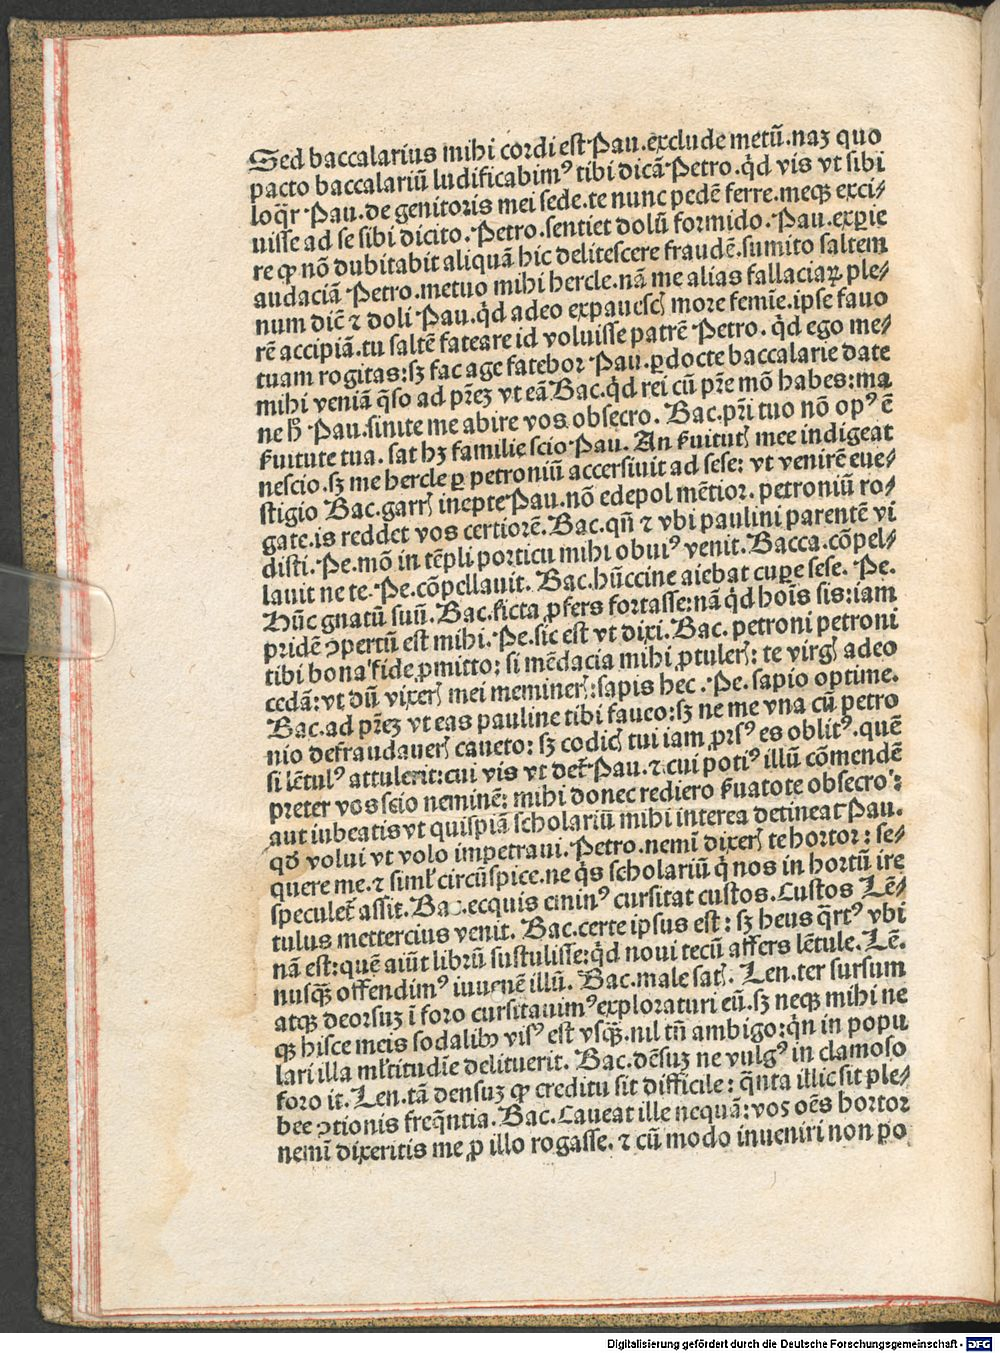 Sed baccalarius mihi cordi est Pau. exclude metū. naꝫ quo
pacto baccalariū ludificabimꝰ tibi dicā Petro. qd̄ vis vt sibi
loqr̄ Pau. de genitoris mei sede. te nunc pedē ferre. meqꝫ exci⸗
uisse ad se sibi dicito. Petro. sentiet dolū formido. Pau. exꝑie
re ꝙ nō dubitabit aliquā hic delitescere fraudē. sumito saltem
audaciā Petro. metuo mihi hercle. nā me alias fallaciaꝝ ple⸗
num diē ⁊ doli Pau. qd̄ adeo expauescꝭ more femie. ipse fauo
rē accipiā. tu saltē fateare id voluisse patrē Petro. qd̄ ego me⸗
tuam rogitas: sꝫ fac age fatebor Pau. ꝑdocte baccalarie date
mihi veniā q̄so ad pr̄eꝫ vt eā Bac. qd̄ rei cū pr̄e mō habes: ma
ne hꝭ Pau. sinite me abire vos obsecro. Bac. pr̄i tuo nō opꝰ ē
ẜuitute tua. sat hꝫ familie scio Pau. An ẜuitutꝭ mee indigeat
nescio. sꝫ me hercle ꝑ petroniū accersiuit ad sese: vt venirē eue⸗
stigio Bac. garrꝭ inepte Pau. nō edepol mētior. petroniū ro⸗
gate. is reddet vos certiorē. Bac. qn̄ ⁊ vbi paulini parentē vi
disti. Pe. mō in tēpli porticu mihi obuiꝰ venit. Bacca. cōpel⸗
lauit ne te. Pe. cōpellauit. Bac. hūccine aiebat cuꝑe sese. Pe.
Hūc gnatū suū. Bac. ficta ꝓfers fortasse: nā qd̄ hoīs sis: iam
pridē ꝯpertū est mihi. Pe. sic est vt dixi. Bac. petroni petroni
tibi bona fide ꝓmitto: si mēdacia mihi ꝓtulerꝭ: te virgꝭ adeo
cedā: vt dū vixerꝭ mei meminerꝭ: sapis hec. Pe. sapio optime.
Bac. ad pr̄eꝫ vt eas pauline tibi faueo: sꝫ ne me vna cū petro
nio defraudauerꝭ caueto: sꝫ codicꝭ tui iam ꝓrsꝰ es oblitꝰ. quē
si lētulꝰ attulerit: cui vis vt det᷑ Pau. ⁊ cui potiꝰ illū cōmendē
preter vos scio neminē: mihi donec rediero ẜuatote obsecro:
aut iubeatis vt quispiā scholariū mihi interea detineat Pau.
qd̄ volui vt volo impetraui. Petro. nemī dixerꝭ te hortor: se⸗
quere me. ⁊ siml̓ circūspice. ne q̄s scholariū q̄ nos in hortū ire
speculet᷑ assit. Bac. ecquis eminꝰ cursitat custos. Custos Lē⸗
tulus mettercius venit. Bac. certe ipsus est: sꝫ heus q̄rtꝰ vbi
nā est: quē aiūt librū sustulisse: qd̄ noui tecū affers lētule. Lē.
nusq̄ꝫ offendimꝰ iuuenē illū. Bac. male satꝭ. Len. ter sursum
atqꝫ deorsuꝫ ī foro cursitauimꝰ exploraturi eū. sꝫ neqꝫ mihi ne
qꝫ hisce meis sodalibꝰ visꝰ est vsq̄ꝫ. nil tn̄ ambigo: qn̄ in popu
lari illa ml̓titudīe delituerit. Bac. dēsuꝫ ne vulgꝰ in clamoso
foro it. Len. tā densuꝫ ꝙ creditu sit difficile: q̄nta illic sit ple⸗
bee ꝯtionis freq̄ntia. Bac. Caueat ille nequā: vos oēs hortor
nemī dixeritis me ꝓ illo rogasse. ⁊ cū modo inueniri non po
Digitalisierung gefördert durch die Deutsche Forschungsgemeinschaft - DFG